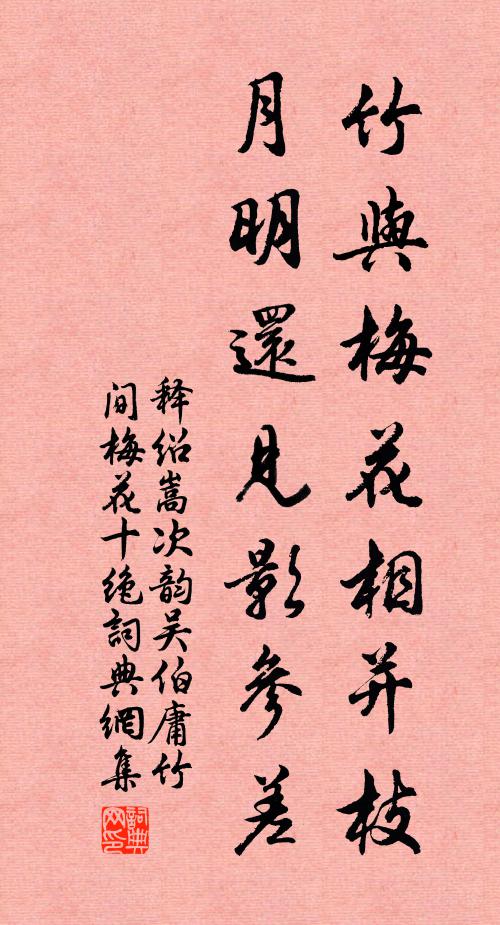 竹與梅花相并枝
月明還見影參差
释绍嵩次韵吴伯庸竹
间梅花十绝詞典網集
詞典
网印